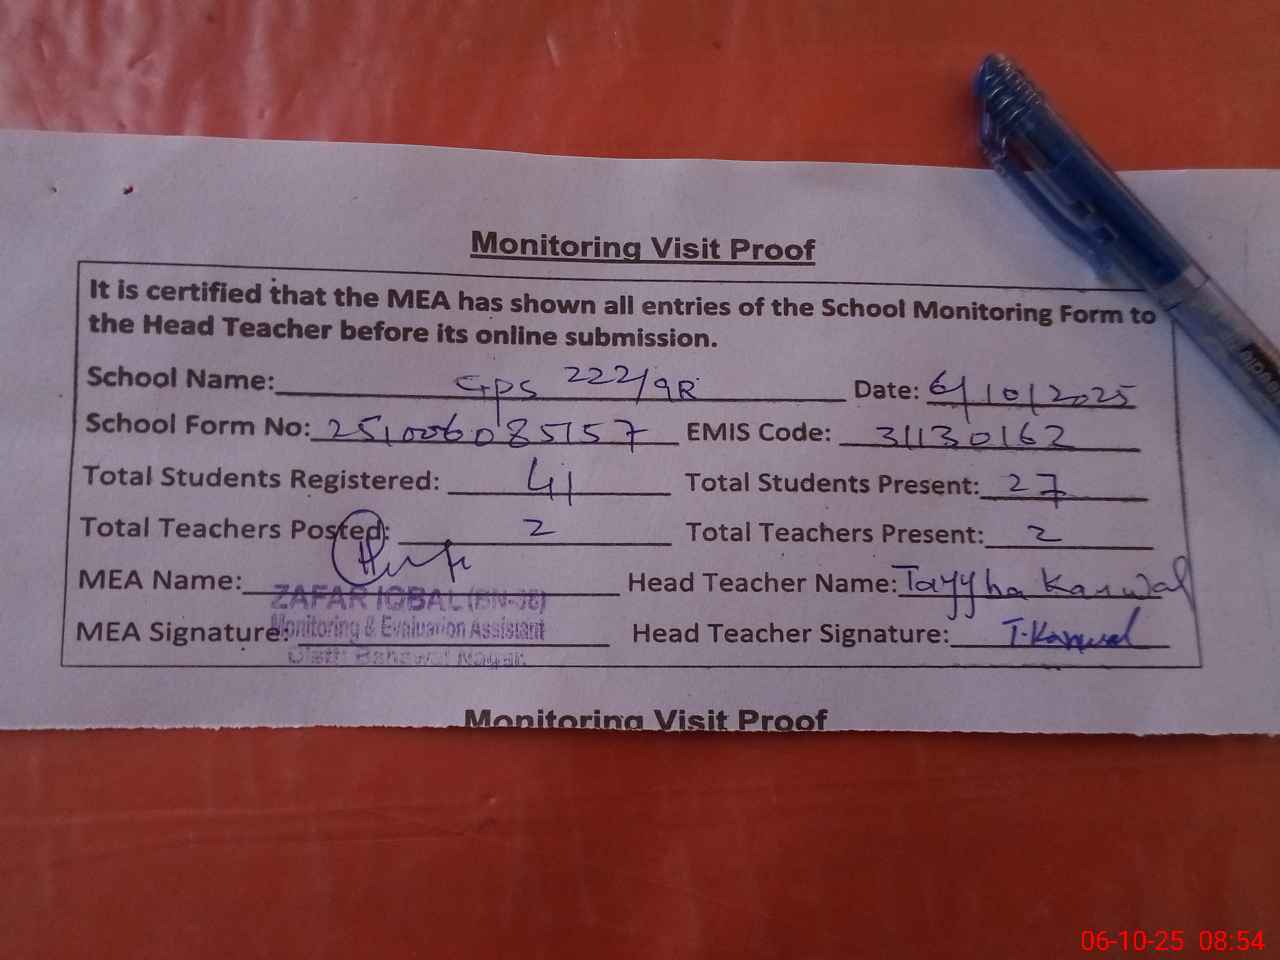 Monitoring Visit Proof
It is certified that the MEA has shown all entries of the School Monitoring Form to
the Head Teacher before its online submission.
School Name: GPS 222/9R Date: 6/10/2025
School Form No: 251006085157 EMIS Code: 31130162
Total Students Registered: 41 Total Students Present: 27
Total Teachers Posted: 2 Total Teachers Present: 2
MEA Name: Head Teacher Name: Tayyba Kanwal
ZAFAR IQBAL
MEA Signature: Monitoring & Evaluation Assistant Head Teacher Signature: T.Kanwal
Bahawal Nagar
Monitoring Visit Proof
06-10-25 08:54